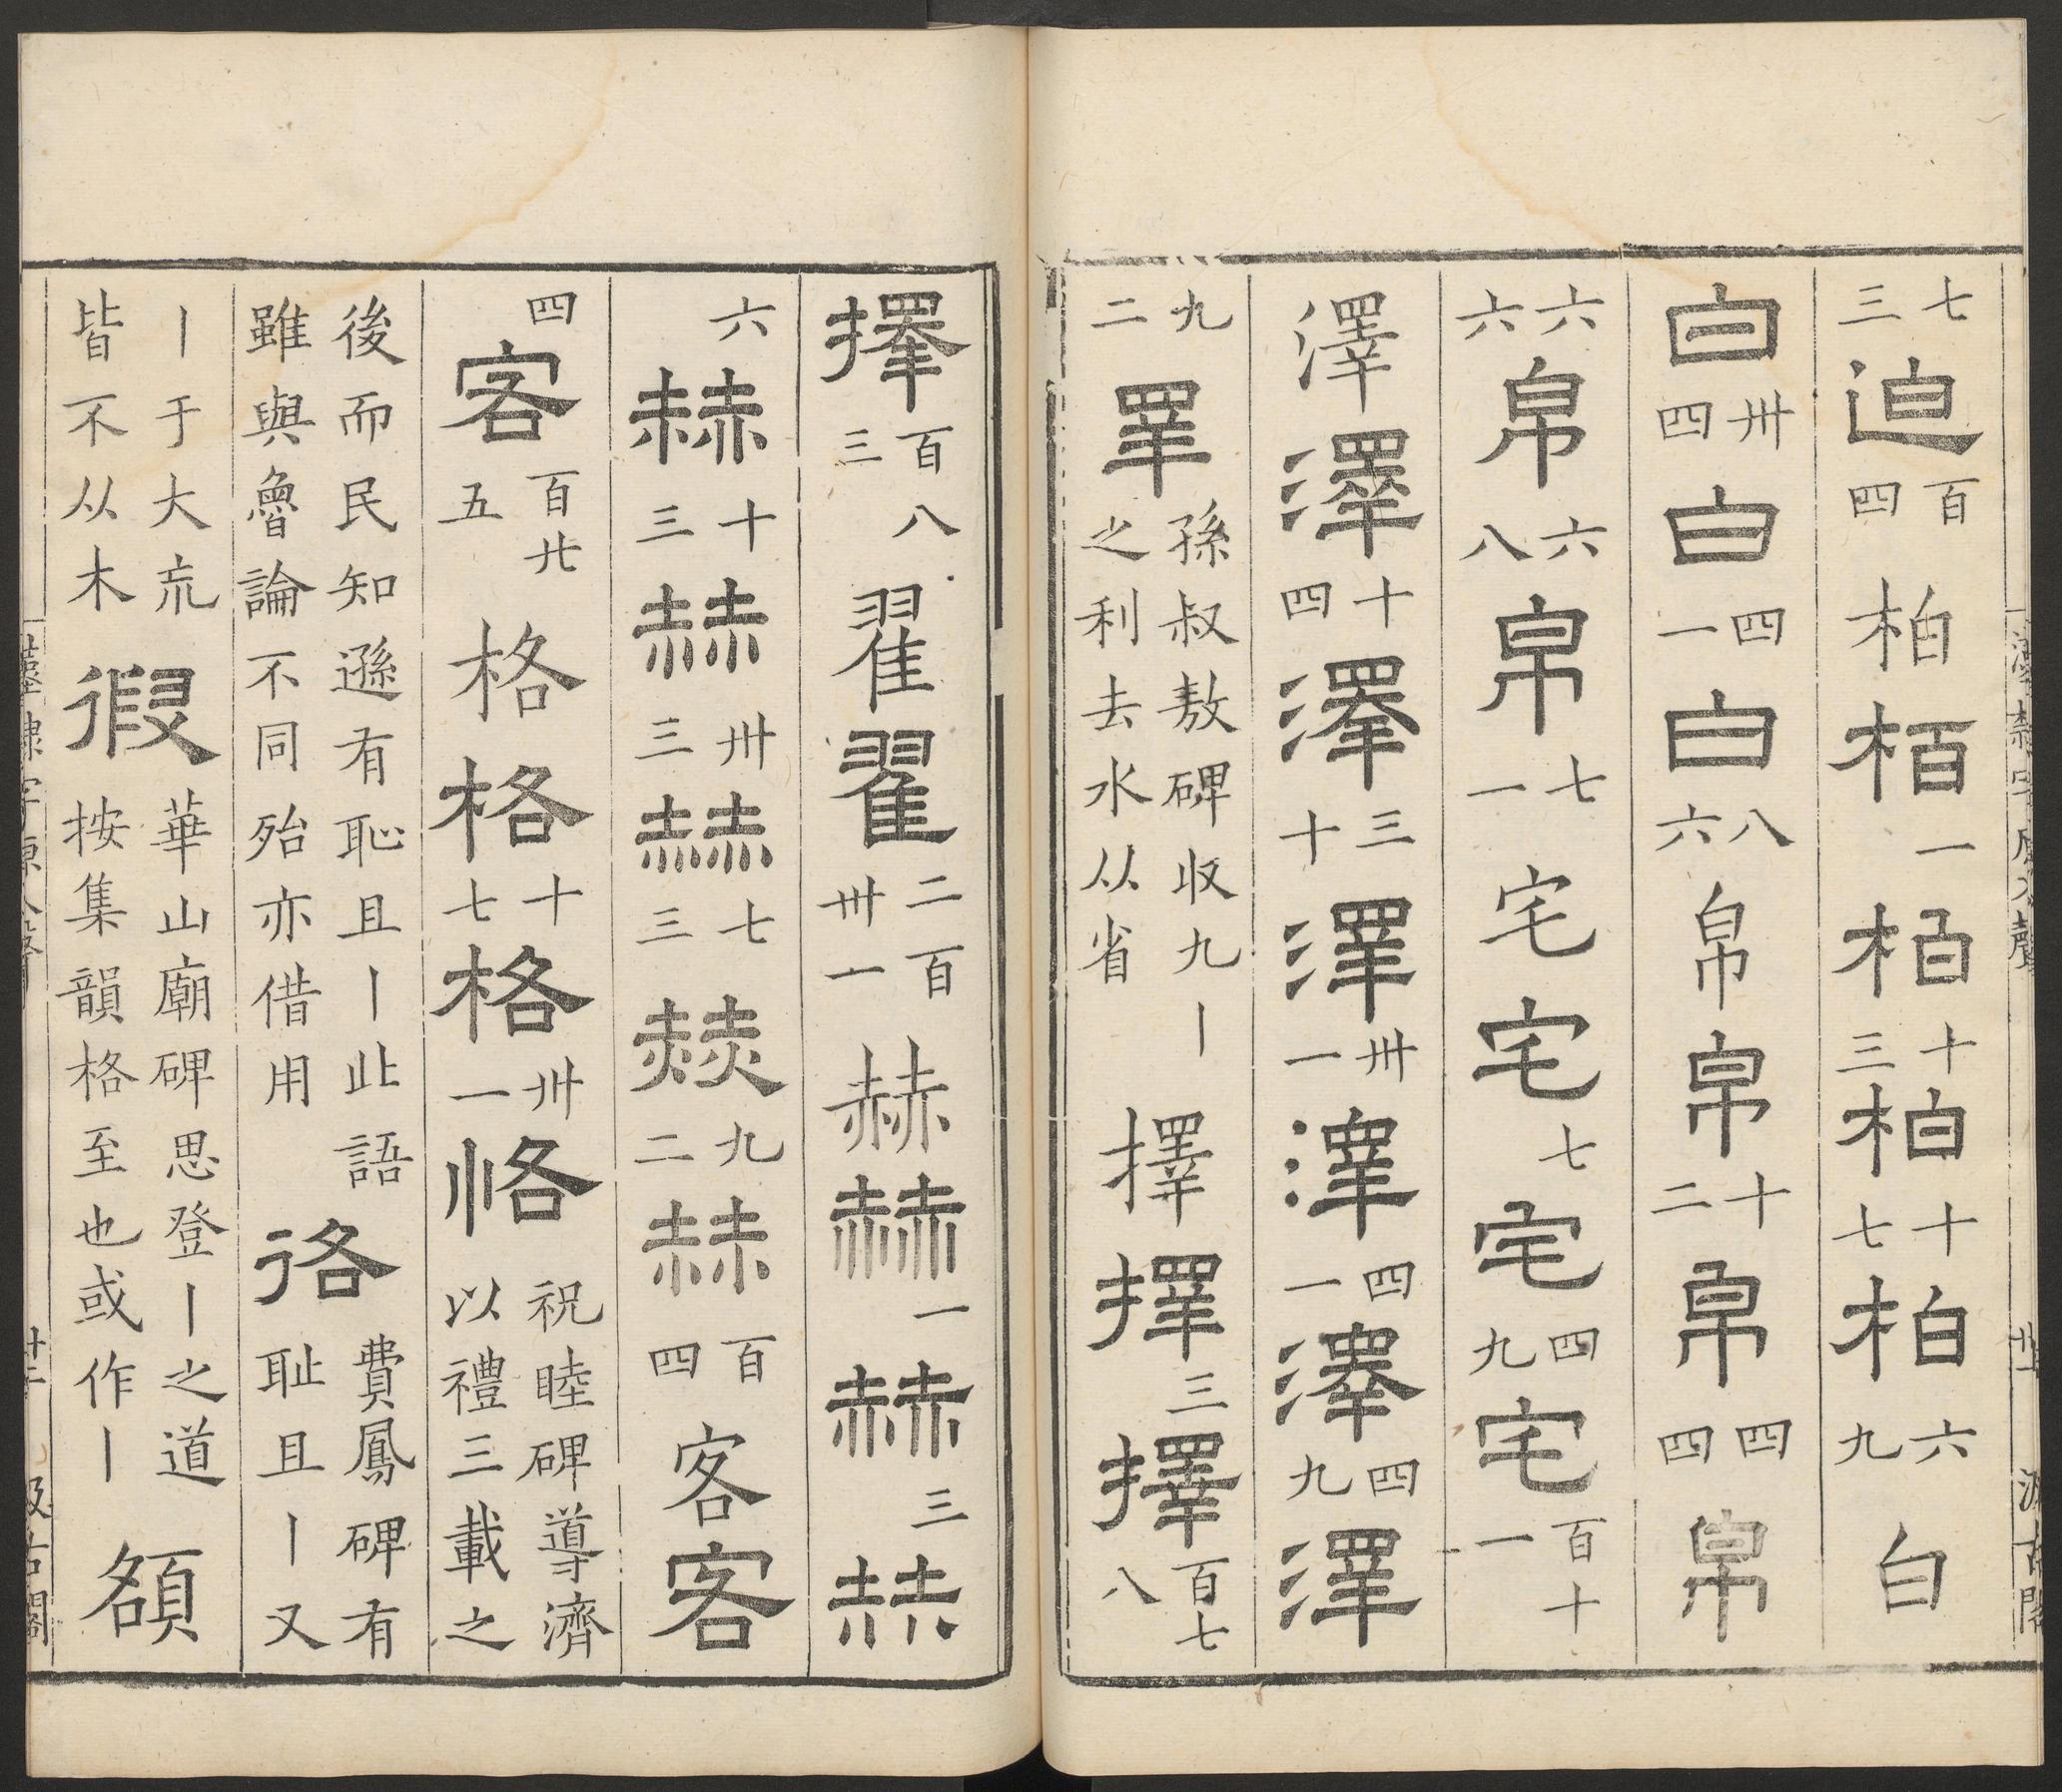 七三迫百四柏栢一栢十三柏十七柏六九白
白卅四白四一白八六帛帛十二帛四四帛
六六帛六八帛七一宅宅七宅四九宅百十一
澤澤十四澤三十澤卅一澤四一澤四九澤
九二睪孫叔敖碑收九丨之利去水从省擇擇三擇百七八
擇百八三翟翟二百卅一赫赫一赫三赫
六赫十三赫卅三赫七三赫九二赫百四客客
四客百廿五格格十七格卅一恪祝睦碑導濟以禮三載之
後而民知遜有恥且丨此語雖與魯論不同殆亦借用挌費鳳碑有耻且丨又
丨于大荒皆不从木徦華山廟碑思登丨之道按集韻格至也或作丨額